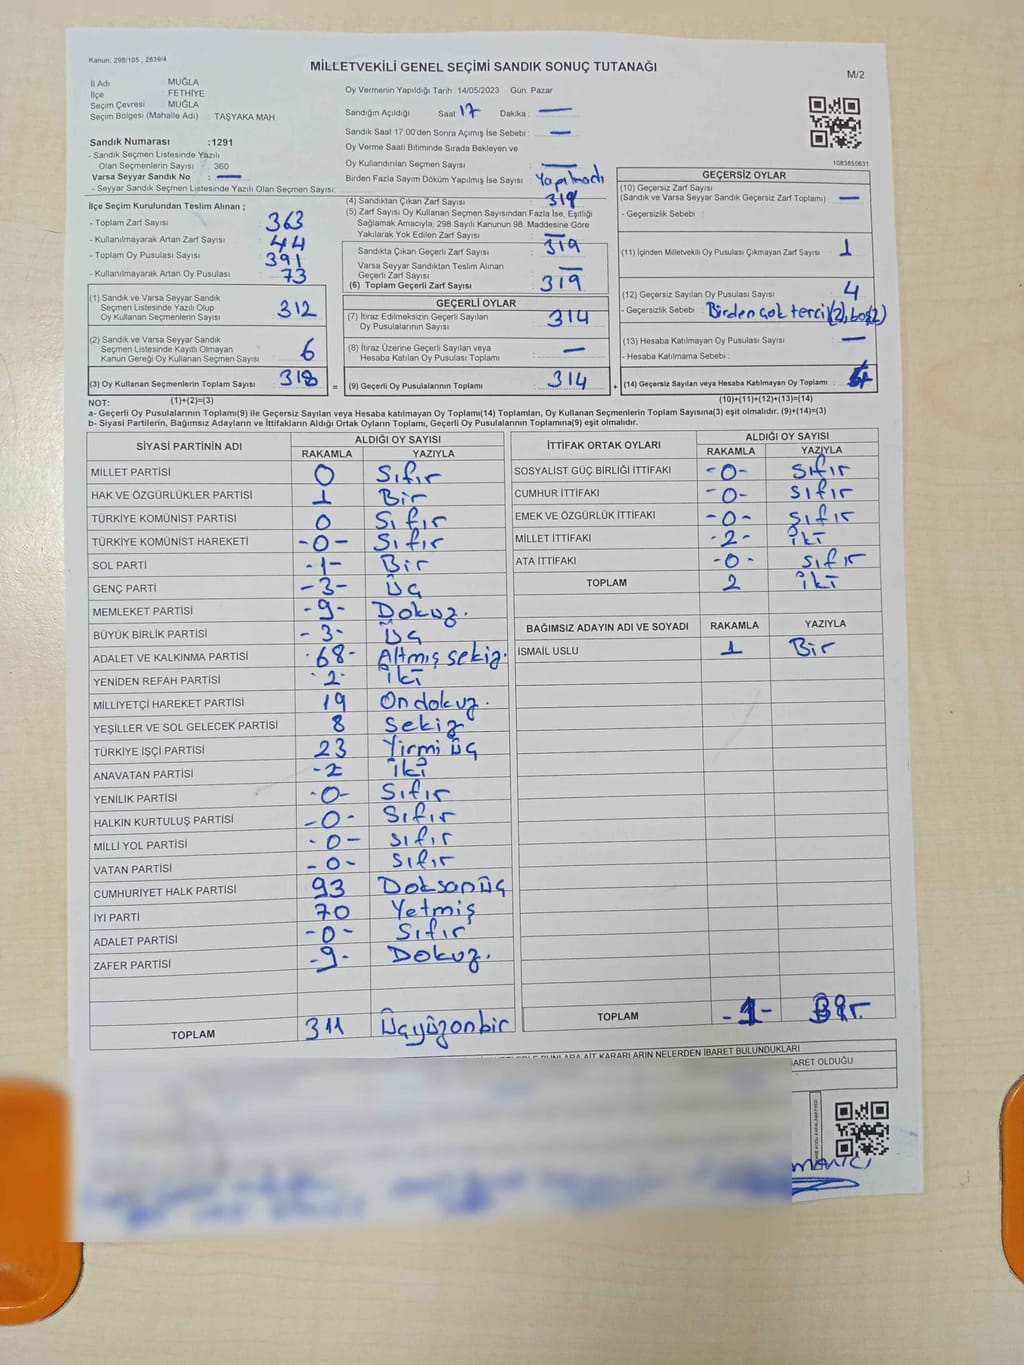 Kanun: 298/105 , 2839/4
MİLLETVEKİLİ GENEL SEÇİMİ SANDIK SONUÇ TUTANAĞI
M/2
İl Adı : MUĞLA
İlçe : FETHİYE
Seçim Çevresi : MUĞLA
Seçim Bölgesi (Mahalle Adı) : TAŞYAKA MAH.
Sandık Numarası :1291
- Sandık Seçmen Listesinde Yazılı
Olan Seçmenlerin Sayısı : 360
Varsa Seyyar Sandık No : —
- Seyyar Sandık Seçmen Listesinde Yazılı Olan Seçmen Sayısı:
Oy Vermenin Yapıldığı Tarih :14/05/2023 Gün: Pazar
Sandığın Açıldığı Saat: 17 Dakika : —
Sandık Saat 17:00'den Sonra Açılmış İse Sebebi : —
Oy Verme Saati Bitiminde Sırada Bekleyen ve
Oy Kullandırılan Seçmen Sayısı : —
Birden Fazla Sayım Döküm Yapılmış İse Sayısı : Yapılmadı
1083855631
İlçe Seçim Kurulundan Teslim Alınan ;
- Toplam Zarf Sayısı : 363
- Kullanılmayarak Artan Zarf Sayısı : 44
- Toplam Oy Pusulası Sayısı : 391
- Kullanılmayarak Artan Oy Pusulası : 73
(1) Sandık ve Varsa Seyyar Sandık
Seçmen Listesinde Yazılı Olup
Oy Kullanan Seçmenlerin Sayısı : 312
(2) Sandık ve Varsa Seyyar Sandık
Seçmen Listesinde Kayıtlı Olmayan
Kanun Gereği Oy Kullanan Seçmen Sayısı : 6
(3) Oy Kullanan Seçmenlerin Toplam Sayısı : 318
(4) Sandıktan Çıkan Zarf Sayısı : 319
(5) Zarf Sayısı Oy Kullanan Seçmen Sayısından Fazla İse, Eşitliği
Sağlamak Amacıyla; 298 Sayılı Kanunun 98. Maddesine Göre
Yakılarak Yok Edilen Zarf Sayısı : —
Sandıkta Çıkan Geçerli Zarf Sayısı : 319
Varsa Seyyar Sandıktan Teslim Alınan
Geçerli Zarf Sayısı : —
(6) Toplam Geçerli Zarf Sayısı : 319
GEÇERLİ OYLAR
(7) İtiraz Edilmeksizin Geçerli Sayılan
Oy Pusulalarının Sayısı : 314
(8) İtiraz Üzerine Geçerli Sayılan veya
Hesaba Katılan Oy Pusulası Toplamı : —
= (9) Geçerli Oy Pusulalarının Toplamı : 314
GEÇERSİZ OYLAR
(10) Geçersiz Zarf Sayısı
(Sandık ve Varsa Seyyar Sandık Geçersiz Zarf Toplamı) : —
- Geçersizlik Sebebi :
(11) İçinden Milletvekili Oy Pusulası Çıkmayan Zarf Sayısı : 1
(12) Geçersiz Sayılan Oy Pusulası Sayısı : 4
- Geçersizlik Sebebi : Birden çok tercih(2), boş(2)
(13) Hesaba Katılmayan Oy Pusulası Sayısı : —
- Hesaba Katılmama Sebebi :
+ (14) Geçersiz Sayılan veya Hesaba Katılmayan Oy Toplamı :
NOT: (1)+(2)=(3)
(10)+(11)+(12)+(13)=(14)
a- Geçerli Oy Pusulalarının Toplamı(9) ile Geçersiz Sayılan veya Hesaba katılmayan Oy Toplamı(14) Toplamları, Oy Kullanan Seçmenlerin Toplam Sayısına(3) eşit olmalıdır. (9)+(14)=(3)
b- Siyasi Partilerin, Bağımsız Adayların ve İttifakların Aldığı Ortak Oyların Toplamı, Geçerli Oy Pusulalarının Toplamına(9) eşit olmalıdır.
SİYASİ PARTİNİN ADI ALDIĞI OY SAYISI
RAKAMLA YAZIYLA
MİLLET PARTİSİ 0 Sıfır
HAK VE ÖZGÜRLÜKLER PARTİSİ 1 Bir
TÜRKİYE KOMÜNİST PARTİSİ 0 Sıfır
TÜRKİYE KOMÜNİST HAREKETİ -0- Sıfır
SOL PARTİ -1- Bir
GENÇ PARTİ -3- Üç
MEMLEKET PARTİSİ -9- Dokuz.
BÜYÜK BİRLİK PARTİSİ -3- Üç
ADALET VE KALKINMA PARTİSİ -68- Altmış sekiz.
YENİDEN REFAH PARTİSİ -2- İki
MİLLİYETÇİ HAREKET PARTİSİ 19 Ondokuz.
YEŞİLLER VE SOL GELECEK PARTİSİ 8 Sekiz
TÜRKİYE İŞÇİ PARTİSİ 23 Yirmi üç
ANAVATAN PARTİSİ -2 İki
YENİLİK PARTİSİ -0- Sıfır
HALKIN KURTULUŞ PARTİSİ -0- Sıfır
MİLLİ YOL PARTİSİ -0- sıfır
VATAN PARTİSİ -0- Sıfır
CUMHURİYET HALK PARTİSİ 93 Doksanüç
İYİ PARTİ 70 Yetmiş
ADALET PARTİSİ -0- Sıfır
ZAFER PARTİSİ -9- Dokuz.
TOPLAM 311 Üçyüzonbir
İTTİFAK ORTAK OYLARI ALDIĞI OY SAYISI
RAKAMLA YAZIYLA
SOSYALİST GÜÇ BİRLİĞİ İTTİFAKI -0- sıfır
CUMHUR İTTİFAKI -0- sıfır
EMEK VE ÖZGÜRLÜK İTTİFAKI -0- sıfır
MİLLET İTTİFAKI -2- iki
ATA İTTİFAKI -0- sıfır
TOPLAM 2 iki
BAĞIMSIZ ADAYIN ADI VE SOYADI RAKAMLA YAZIYLA
İSMAİL USLU 1 Bir
TOPLAM -1- Bir.
AİT KARARLARIN NELERDEN İBARET BULUNDUKLARI
İBARET OLDUĞU